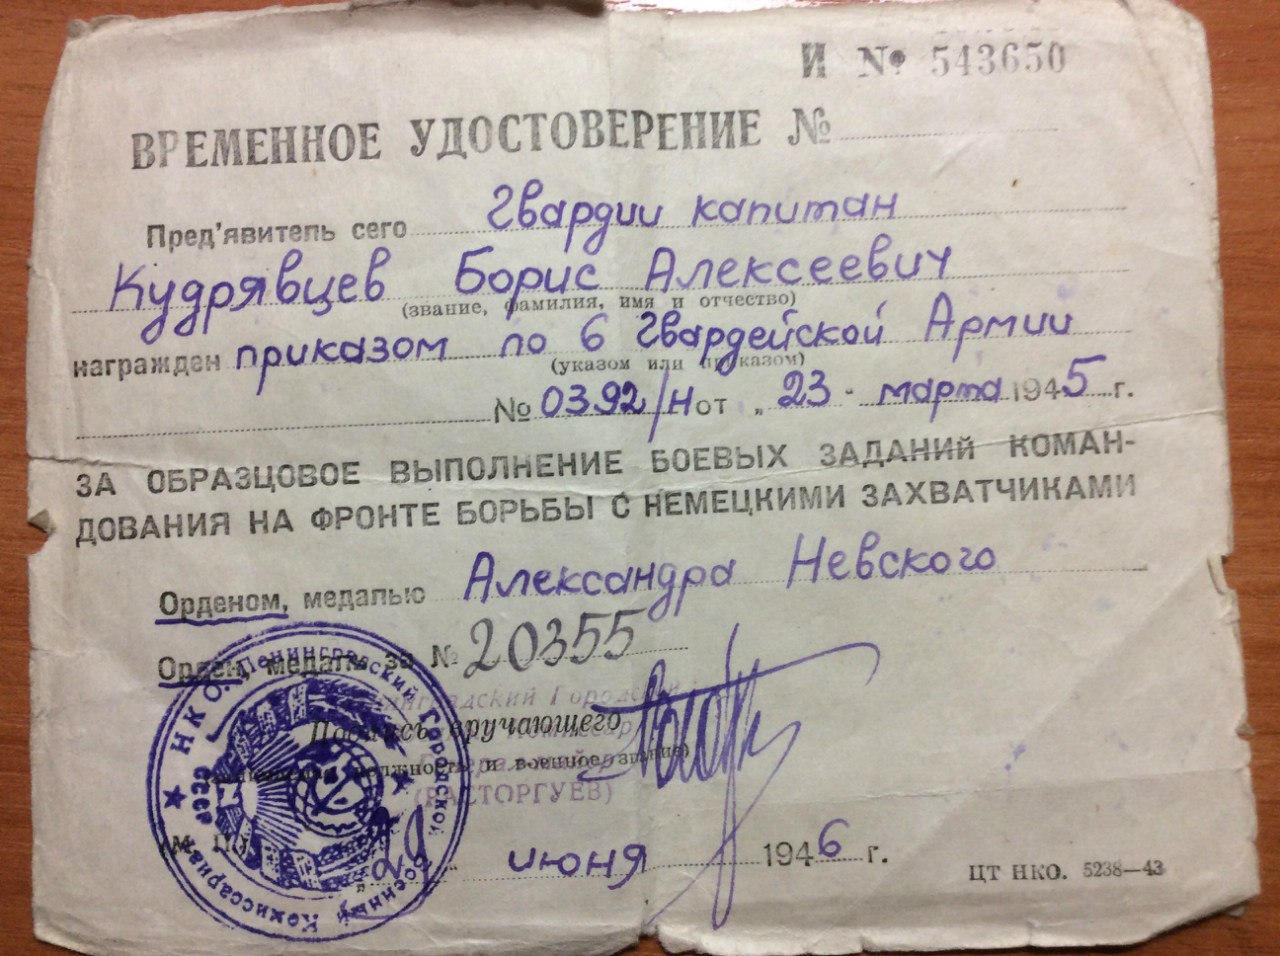 И № 543650
ВРЕМЕННОЕ УДОСТОВЕРЕНИЕ №
Пред'явитель сего Гвардии капитан
Кудрявцев Борис Алексеевич
(звание, фамилия, имя и отчество)
награжден приказом по 6 Гвардейской Армии
(указом или приказом)
№ 0392/н от „ 23 - марта 1945 г.
ЗА ОБРАЗЦОВОЕ ВЫПОЛНЕНИЕ БОЕВЫХ ЗАДАНИЙ КОМАН-
ДОВАНИЯ НА ФРОНТЕ БОРЬБЫ С НЕМЕЦКИМИ ЗАХВАТЧИКАМИ
Орденом, медалью Александра Невского
Орден, медаль за № 20355
Ленинградский Городской
Подпись вручающего
должность и военное звание)
(РАСТОРГУЕВ)
НКО. Ленинградский Городской Военный Комиссариат
СССР
(М. П.)
„ 29 июня 1946 г.
ЦТ НКО. 5238—43